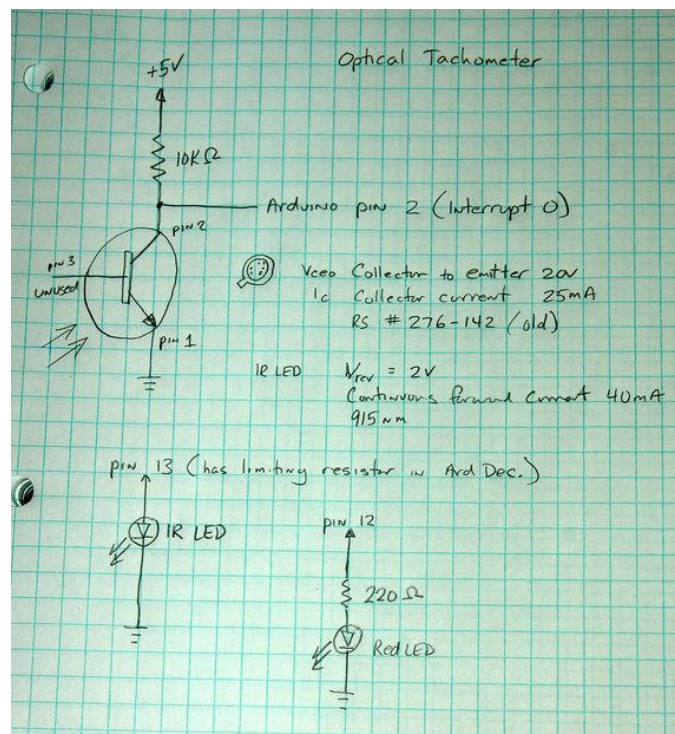 Optical Tachometer
+5V
10KΩ
Arduino pin 2 (Interrupt 0)
pin 2
pin 3
unused
pin 1
Vceo Collector to emitter 20V
Ic Collector current 25mA
RS # 276-142 (old)
IR LED
Vrev = 2V
Continuous forward current 40mA
915nm
pin 13 (has limiting resistor in Ard Dec.)
IR LED
pin 12
220Ω
Red LED